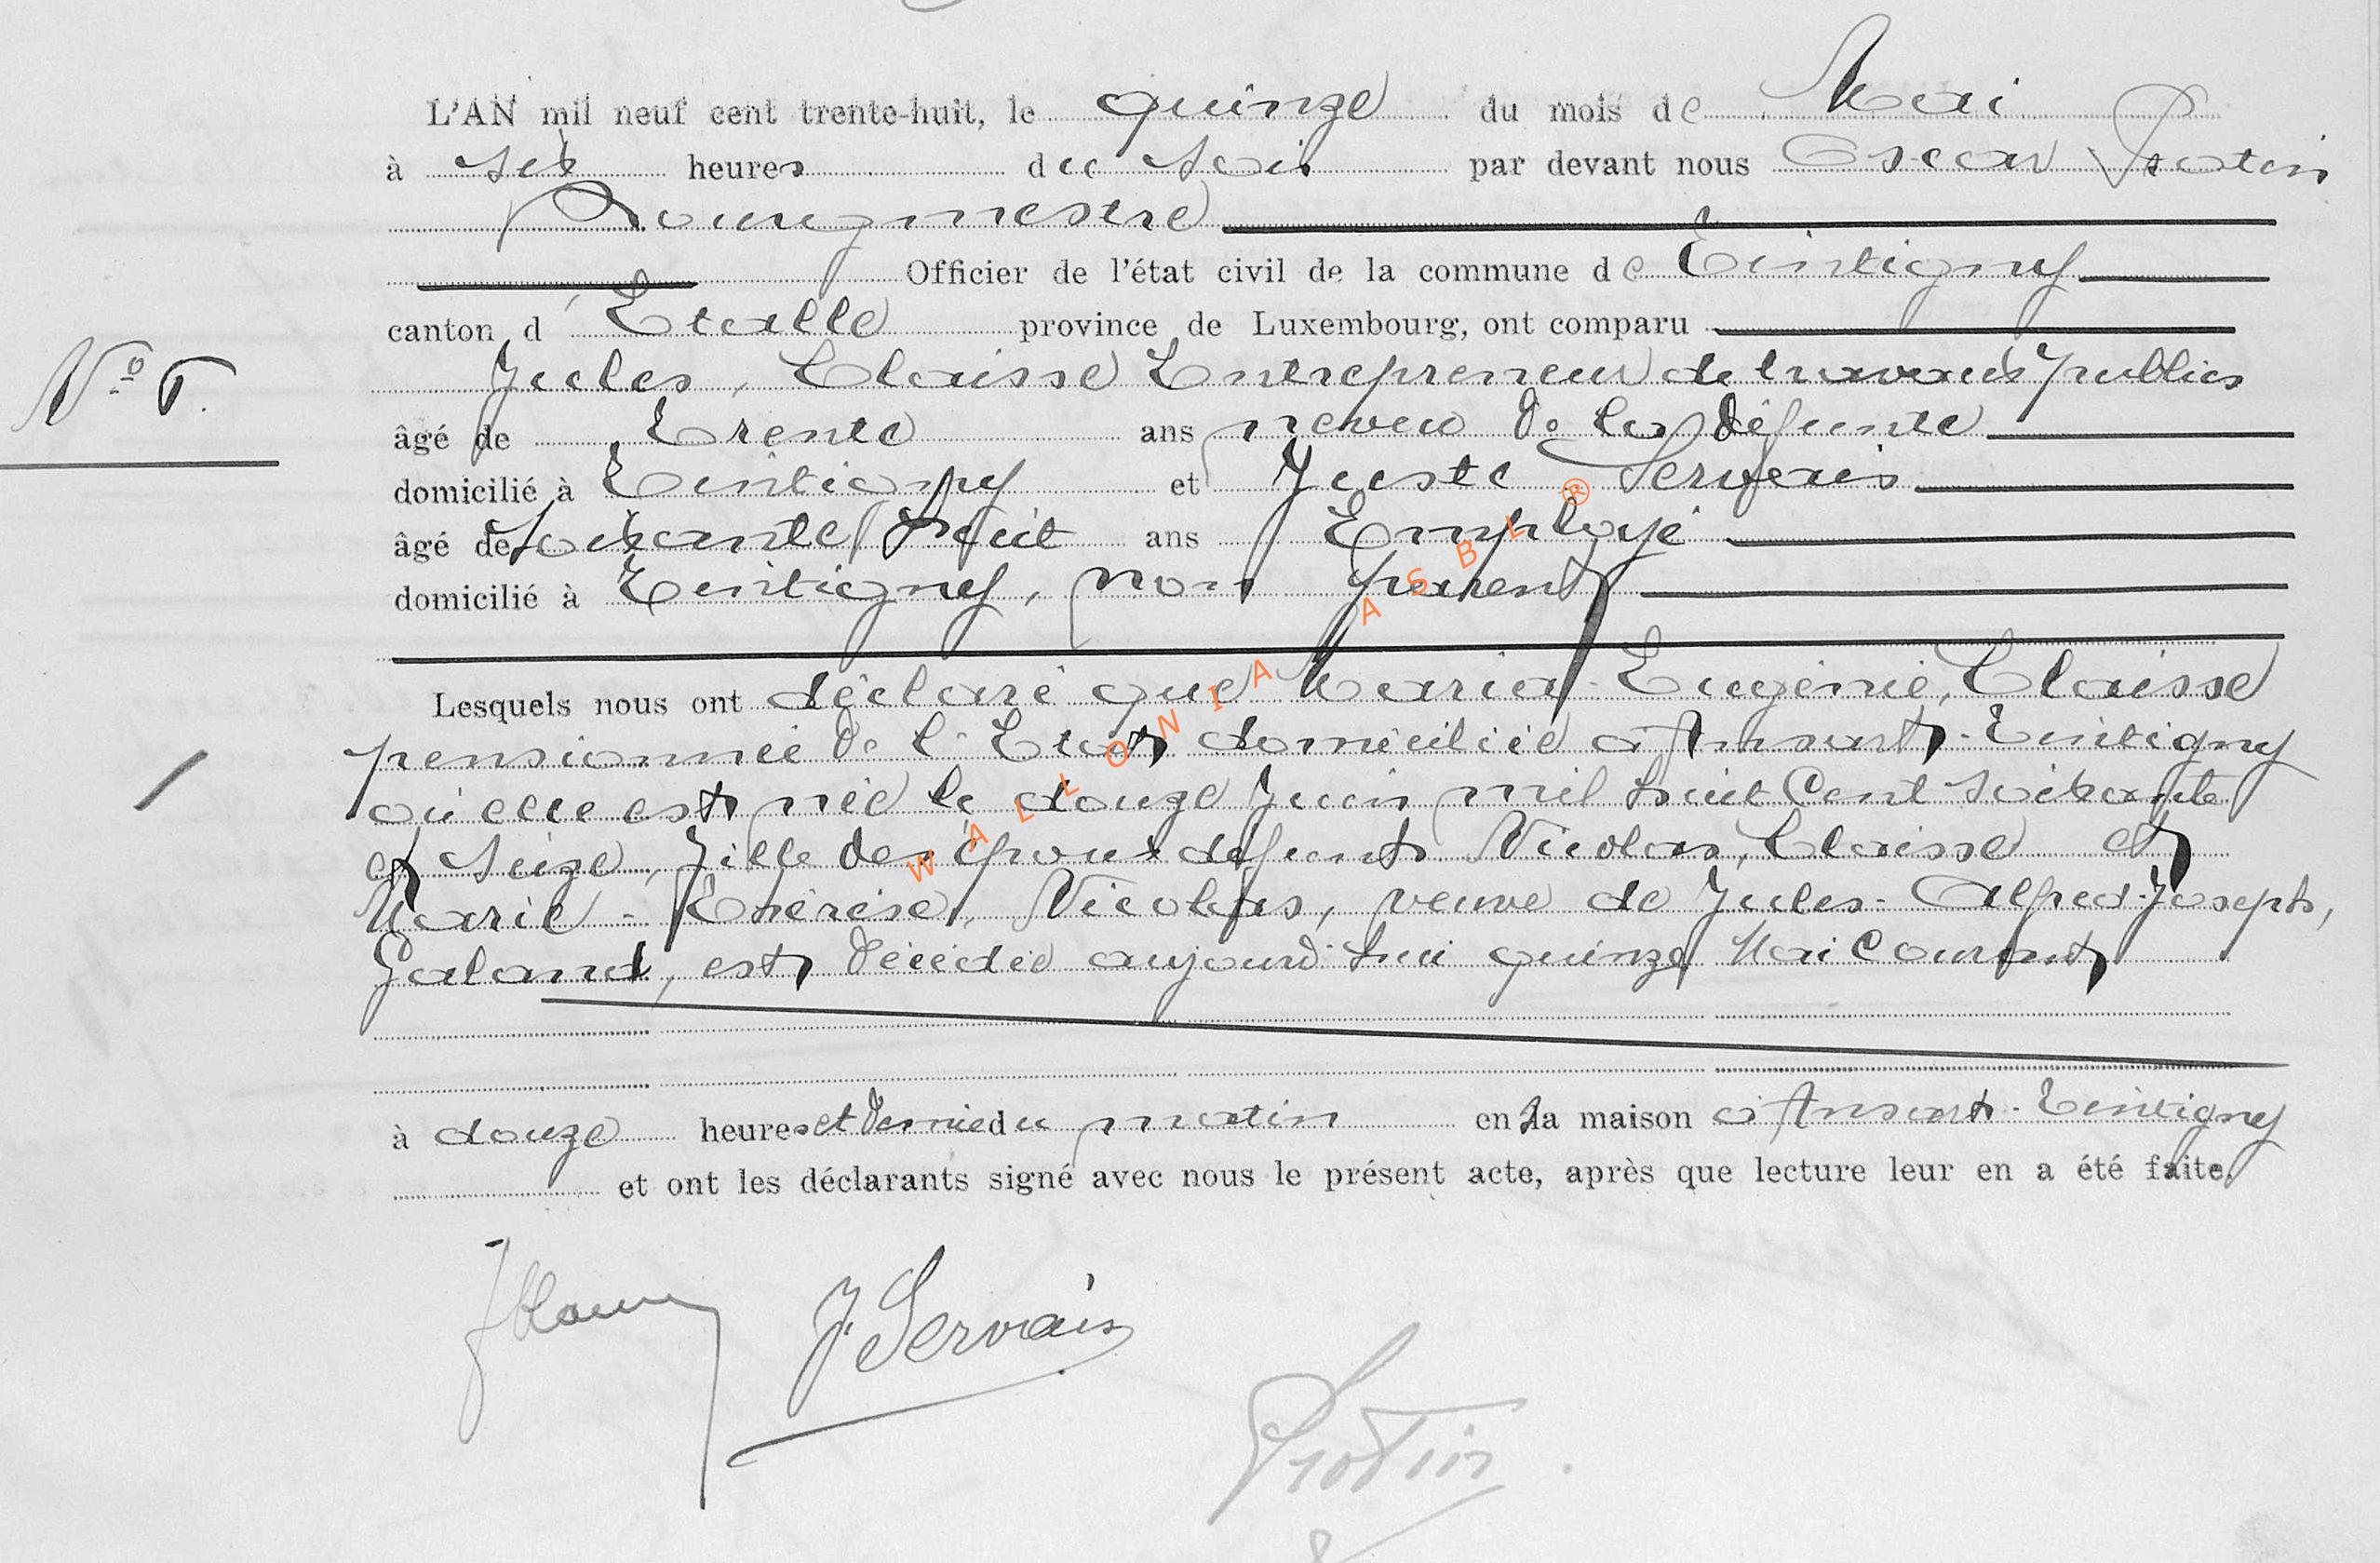 L'AN mil neuf cent trente-huit, le quinze du mois de Mai
à six heures du soir par devant nous Oscar Protin
Bourgmestre
Officier de l'état civil de la commune de Tintigny
canton d'Etalle province de Luxembourg, ont comparu
Jules, Claisse Entrepreneur de travaux publics
âgé de Trente ans neveu de la défunte
domicilié à Tintigny et Juste Servais
âgé de Soixante huit ans Employé
domicilié à Tintigny, non parent
Lesquels nous ont déclaré que Maria-Eugénie, Claisse
pensionnée de l'Etat domiciliée à Ansart-Tintigny
où elle est née le douze Juin mil huit Cent soixante
et seize, fille des époux défunts Nicolas, Claisse et
Marie-Thérèse, Nicolas, veuve de Jules-Alfred-Joseph,
Galand, est décédée aujourd'hui quinze Mai Courant
à douze heures et demie du matin en sa maison à Ansart-Tintigny
et ont les déclarants signé avec nous le présent acte, après que lecture leur en a été faite.
J. Servais
Protin
N°
WALLONIA ASBL ®